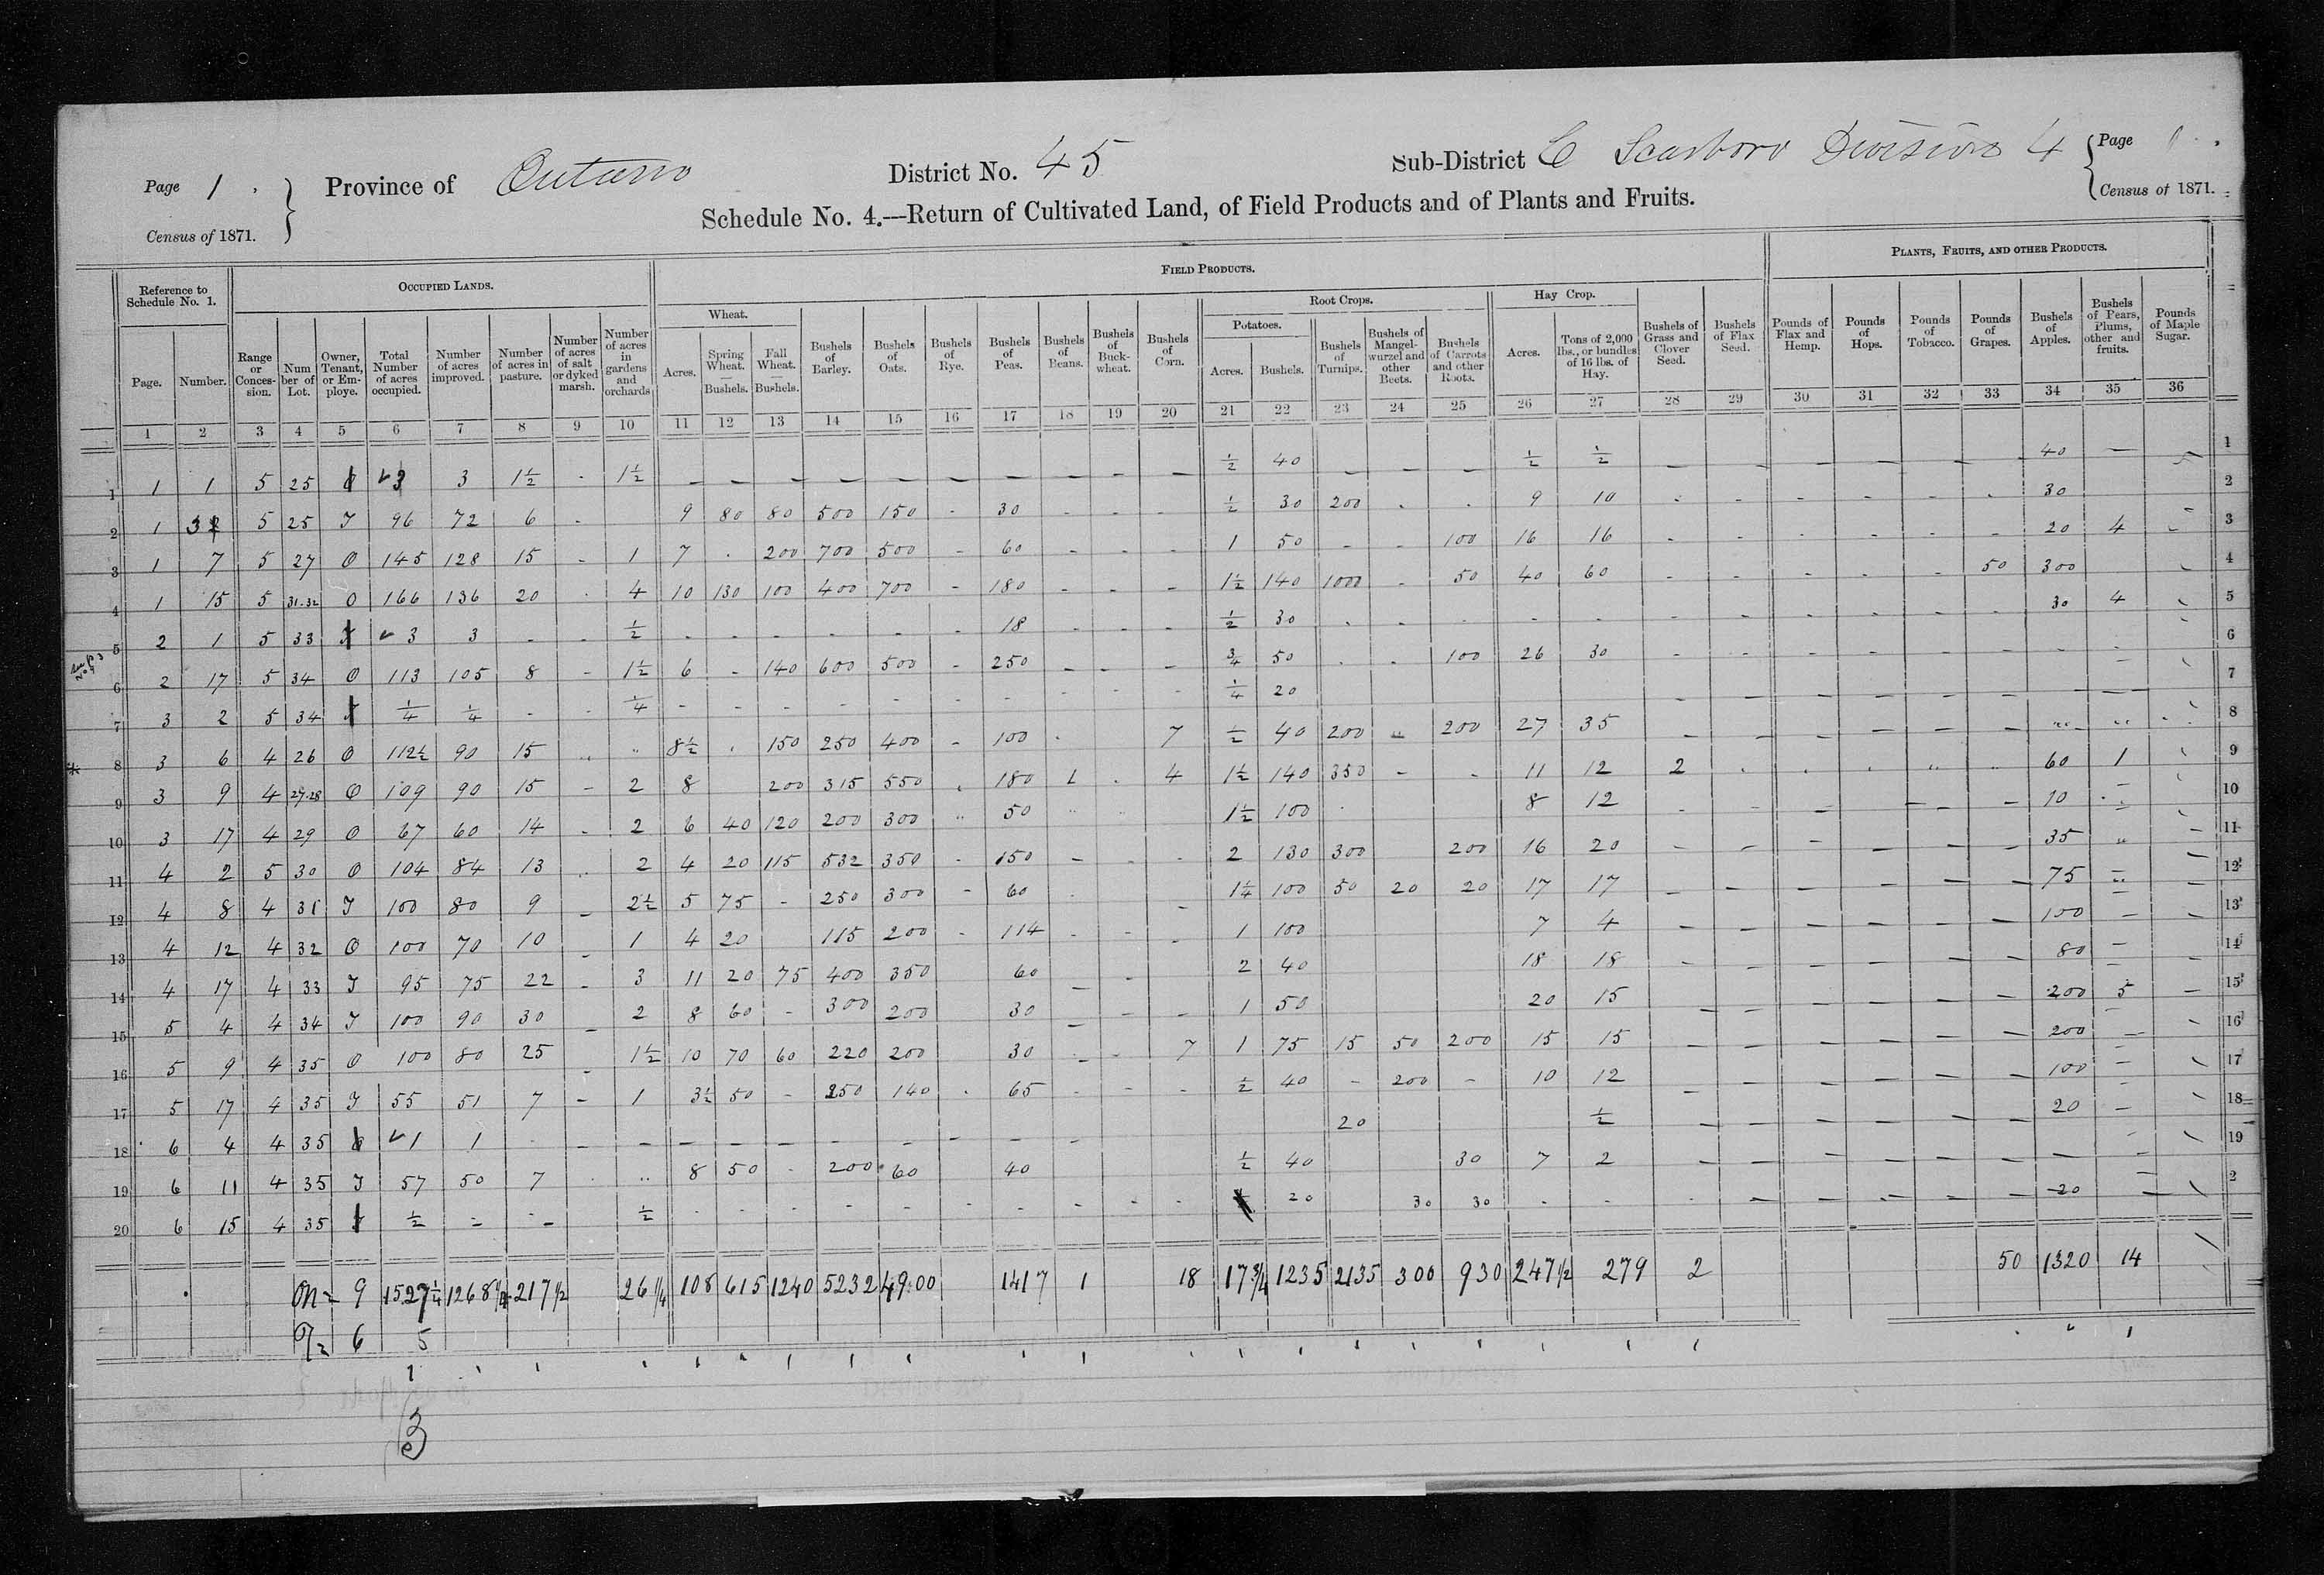 Page 1 . } Province of Ontario District No. 45 Sub-District C Scarboro Division 4 { Page
Census of 1871. Schedule No. 4.—Return of Cultivated Land, of Field Products and of Plants and Fruits. Census of 1871.
Reference to Schedule No. 1. OCCUPIED LANDS. FIELD PRODUCTS. PLANTS, FRUITS, AND OTHER PRODUCTS.
Wheat. Root Crops. Hay Crop.
Potatoes.
Page. Number. Range or Conces- sion. Num ber of Lot. Owner, Tenant, or Em- ploye. Total Number of acres occupied. Number of acres improved. Number of acres in pasture. Number of acres of salt or dyked marsh. Number of acres in gardens and orchards Acres. Spring Wheat. — Bushels. Fall Wheat. — Bushels. Bushels of Barley. Bushels of Oats. Bushels of Rye. Bushels of Peas. Bushels of Beans. Bushels of Buck- wheat. Bushels of Corn. Acres. Bushels. Bushels of Turnips. Bushels of Mangel- wurzel and other Beets. Bushels of Carrots and other Roots. Acres. Tons of 2,000 lbs., or bundles of 16 lbs. of Hay. Bushels of Grass and Clover Seed. Bushels of Flax Seed. Pounds of Flax and Hemp. Pounds of Hops. Pounds of Tobacco. Pounds of Grapes. Bushels of Apples. Bushels of Pears, Plums, other and fruits. Pounds of Maple Sugar.
1 2 3 4 5 6 7 8 9 10 11 12 13 14 15 16 17 18 19 20 21 22 23 24 25 26 27 28 29 30 31 32 33 34 35 36
1 1 1 5 25 3 3 1½ - 1½ - - - - - - - - - - ½ 40 - - - ½ ½ - - - - - - 40 - - 1
2 1 3 5 25 T 96 72 6 - 9 80 80 500 150 - 30 - - - ½ 30 200 . . 9 10 - - - - - - 30 2
3 1 7 5 27 O 145 128 15 - 1 7 . 200 700 500 - 60 - - - 1 50 - - 100 16 16 - - - - - - 20 4 - 3
4 1 15 5 31.32 O 166 136 20 - 4 10 130 100 400 700 - 180 - - - 1½ 140 1000 - 50 40 60 - - - - - 50 300 4
5 2 1 5 33 3 3 - - ½ - - - - - - 18 - - - ½ 30 - - - - - - - - - - - 30 4 5
6 2 17 5 34 O 113 105 8 - 1½ 6 - 140 600 500 - 250 - - - ¾ 50 - - 100 26 30 - - - - - - - - 6
7 3 2 5 34 ¼ ¼ - - ¼ - - - - - - - - - - ¼ 20 - - - - - - - - 7
8 3 6 4 26 O 112½ 90 15 .. .. 8½ . 150 250 400 - 100 . 7 ½ 40 200 " 200 27 35 - - - - - - .. .. 8
9 3 9 4 27.28 O 109 90 15 - 2 8 200 315 550 . 180 1 . 4 1½ 140 350 - - 11 12 2 . . . .. .. 60 1 9
10 3 17 4 29 O 67 60 14 - 2 6 40 120 200 300 .. 50 .. .. 1½ 100 8 12 - - - - - - 10 - 10
11 4 2 5 30 O 104 84 13 .. 2 4 20 115 532 350 - 150 - - - 2 130 300 200 16 20 - - - - - - 35 " - 11
12 4 8 4 31 T 100 80 9 - 2½ 5 75 - 250 300 - 60 - 1¼ 100 50 20 20 17 17 - - - - - - 75 - 12
13 4 12 4 32 O 100 70 10 - 1 4 20 115 200 - 114 - - - 1 100 7 4 - - - - - - 100 - - 13
14 4 17 4 33 T 95 75 22 - 3 11 20 75 400 350 60 - - 2 40 18 18 - - - - - - 80 - - 14
15 5 4 4 34 T 100 90 30 - 2 8 60 - 300 200 30 - - - 1 50 20 15 - - - - - - 200 5 - 15
16 5 9 4 35 O 100 80 25 - 1½ 10 70 60 220 200 30 - - 7 1 75 15 50 200 15 15 - - - - - - 200 - 16
17 5 17 4 35 T 55 51 7 - 1 3½ 50 - 250 140 . 65 - - - ½ 40 - 200 - 10 12 - - - - - - 100 - 17
18 6 4 4 35 1 1 - - - - - - - - - - - 20 ½ - - - - - - 20 - 18
19 6 11 4 35 T 57 50 7 . .. 8 50 - 200 60 40 ½ 40 30 7 2 - - - - - - - - 19
20 6 15 4 35 ½ - - ½ - - - - - - - - - - 20 30 30 - - - - - - - - 20 - 2
9 1527¼ 1268¼ 217½ 26¼ 108 615 1240 5232 4900 1417 1 18 17¾ 1235 2135 300 930 247½ 279 2 50 1320 14
6 5
3